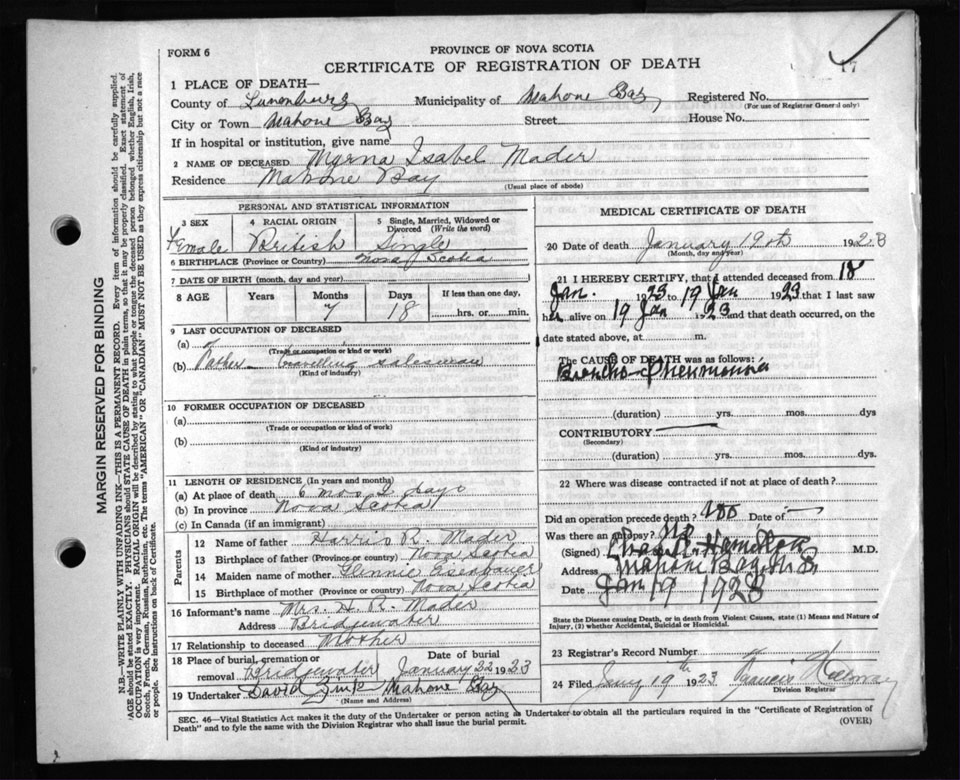 FORM 6
PROVINCE OF NOVA SCOTIA
CERTIFICATE OF REGISTRATION OF DEATH
17
1 PLACE OF DEATH—
County of Lunenburg Municipality of Mahone Bay Registered No.
(For use of Registrar General only)
City or Town Mahone Bay Street House No.
If in hospital or institution, give name
2 NAME OF DECEASED Myrna Isabel Mader
Residence Mahone Bay
(Usual place of abode)
PERSONAL AND STATISTICAL INFORMATION
3 SEX 4 RACIAL ORIGIN 5 Single, Married, Widowed or Divorced (Write the word)
Female British Single
6 BIRTHPLACE (Province or Country) Nova Scotia
7 DATE OF BIRTH (month, day and year)
8 AGE Years Months Days If less than one day,
7 18 hrs. or min.
9 LAST OCCUPATION OF DECEASED
(a)
(Trade or occupation or kind of work)
(b) Father - travelling salesman
(Kind of industry)
10 FORMER OCCUPATION OF DECEASED
(a)
(Trade or occupation or kind of work)
(b)
(Kind of industry)
11 LENGTH OF RESIDENCE (In years and months)
(a) At place of death 6 mos days
(b) In province Nova Scotia
(c) In Canada (if an immigrant)
Parents
12 Name of father Harris R. Mader
13 Birthplace of father (Province or country) Nova Scotia
14 Maiden name of mother Eisenhauer
15 Birthplace of mother (Province or country) Nova Scotia
16 Informant's name Mrs. H. R. Mader
Address Bridgewater
17 Relationship to deceased Mother
18 Place of burial, cremation or Date of burial
removal Bridgewater January 22 1923
19 Undertaker David Zink Mahone Bay
(Name and Address)
MEDICAL CERTIFICATE OF DEATH
20 Date of death January 19th 1928
(Month, day and year)
21 I HEREBY CERTIFY, that I attended deceased from 18
Jan. 1923 to 19 Jan 1923 that I last saw
her alive on 19 Jan 1923 and that death occurred, on
date stated above, at m.
The CAUSE OF DEATH was as follows:
Broncho-Pneumonia
(duration) yrs. mos. dys
CONTRIBUTORY
(Secondary)
(duration) yrs. mos. dys.
22 Where was disease contracted if not at place of death?
Did an operation precede death? no Date of —
Was there an autopsy? no
(Signed) Hamilton M.D.
Address Mahone Bay, N.S.
Date Jan 19 1928
State the Disease causing Death, or in death from Violent Causes, state (1) Means and Nature of Injury, (2) whether Accidental, Suicidal or Homicidal.
23 Registrar's Record Number
24 Filed 19th 1923 Francis
Division Registrar
SEC. 46—Vital Statistics Act makes it the duty of the Undertaker or person acting as Undertaker to obtain all the particulars required in the "Certificate of Registration of
Death" and to fyle the same with the Division Registrar who shall issue the burial permit.
(OVER)
MARGIN RESERVED FOR BINDING
N.B.—WRITE PLAINLY WITH UNFADING INK—THIS IS A PERMANENT RECORD. Every item of information should be carefully supplied.
AGE should be stated EXACTLY. PHYSICIANS should STATE CAUSE OF DEATH in plain terms, so that it may be properly classified. Exact statement of
OCCUPATION is very important. RACIAL ORIGIN will be described by stating to what people or tongue the deceased person belonged whether English, Irish,
Scotch, French, German, Russian, Ruthenian, etc. The terms "AMERICAN" OR "CANADIAN" MUST NOT BE USED as they express citizenship but not a race
or people. See instructions on back of Certificate.